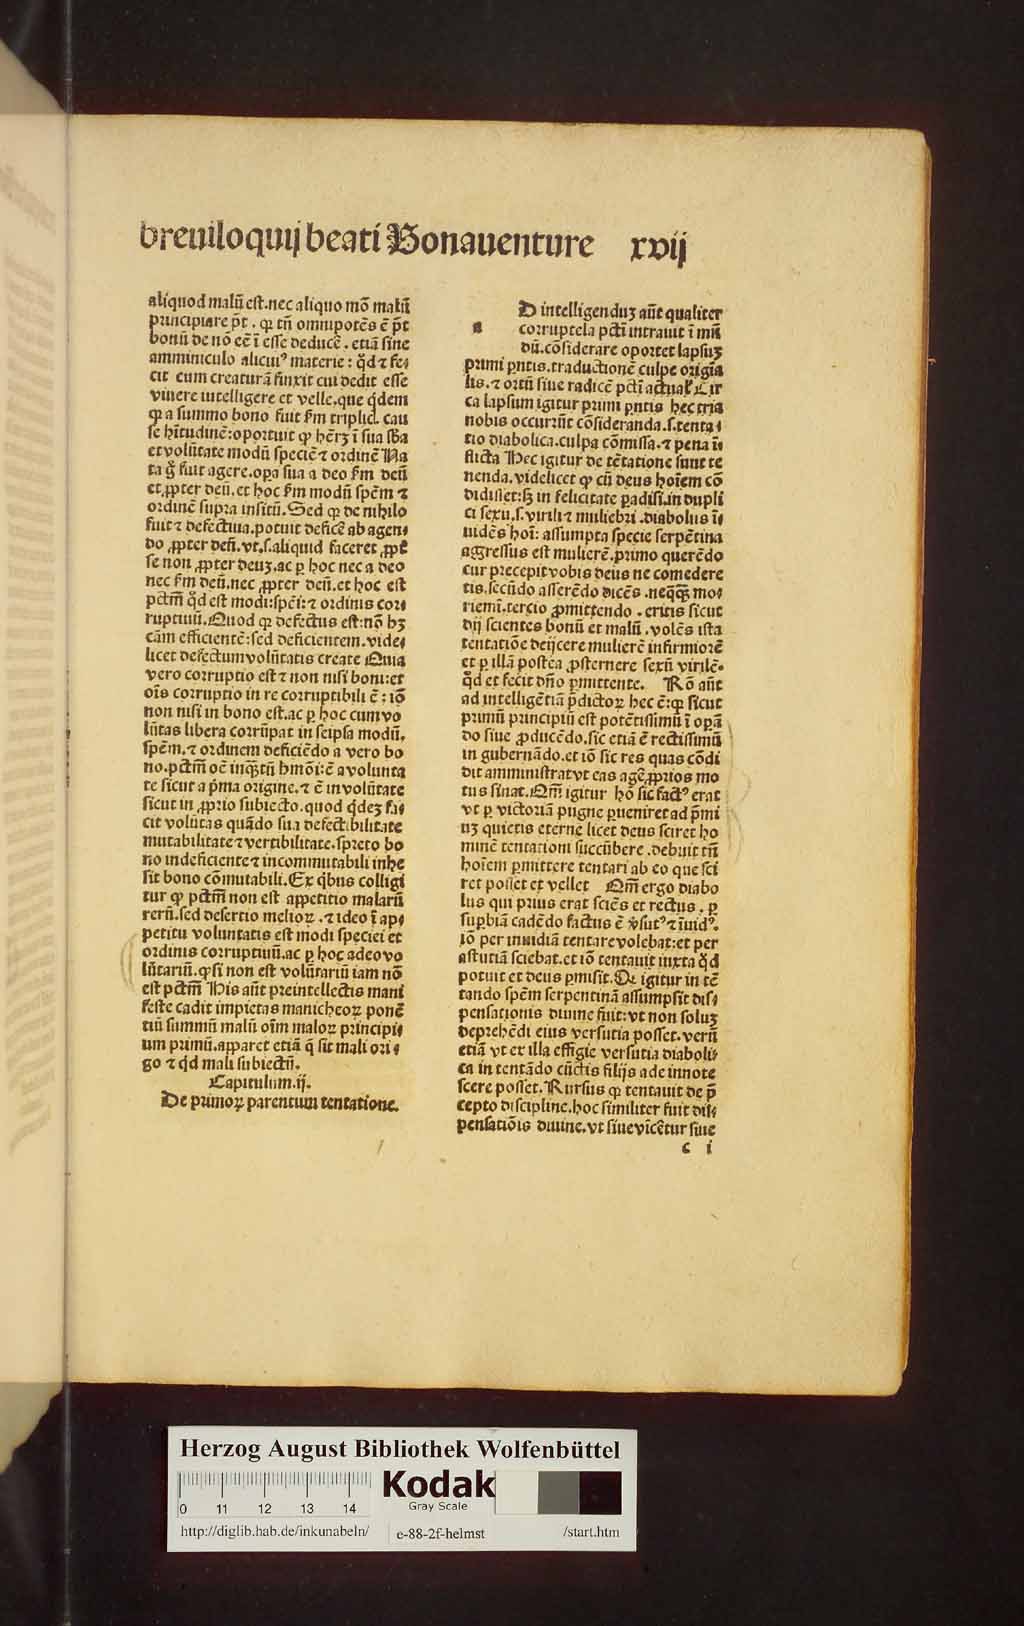 breuiloquij beati Bonauenture xvij
aliquod malū est. nec aliquo mō malū
principiare pt̄. qꝛ tn̄ omnipotēs ē pt̄
bonū de nō eē ī esse deducē. etiā sine
amminiculo alicuiꝰ materie: qd̓ ⁊ fe⸗
cit cum creaturā finxit cui dedit esse
viuere intelligere et velle. que qd̓em
qꝛ a summo bono fuit fm̄ triplicē cau
se hītudinē: oportuit ꝙ hēꝛꝫ ī sua sb̓a
et volūtate modū speciē ⁊ ordinē Na
ta g̊ fuit agere. opa sua a deo fm̄ deū
et ꝓpter deū. et hoc fm̄ modū spēm ⁊
ordinē supra insitū. Sed qꝛ de nihilo
fuit ⁊ defectiua. potuit deficē ab agen⸗
do ꝓpter deū. vt. s. aliquid faceret ꝓpt̓
se non ꝓpter deuꝫ. ac ꝑ hoc nec a deo
nec fm̄ deū. nec ꝓpter deū. et hoc est
pctm̄ qd̓ est modi: spēi: ⁊ ordinis cor⸗
ruptiuū. Quod qꝛ defectus est: nō hꝫ
cām efficientē: sed deficientem. vide⸗
licet defectum volūtatis create Quia
vero corruptio est ⁊ non nisi boni: et
oīs corruptio in re corruptibili ē: iō
non nisi in bono est. ac ꝑ hoc cum vo
lūtas libera corrūpat in seipsa modū.
spēm. ⁊ ordinem deficiēdo a vero bo
no. pctm̄ oē inqꝫtū hmōi: ē a volunta
te sicut a pͥma origine. ⁊ ē in volūtate
sicut in ꝓprio subiecto. quod qd̓eꝫ fa⸗
cit volūtas quādo sua defectibilitate
mutabilitate ⁊ vertibilitate. spreto bo
no indeficiente ⁊ incommutabili inhe
sit bono cōmutabili. Ex qͥbus colligi
tur ꝙ pctm̄ non est appetitio malarū
rerū. sed desertio melioꝝ. ⁊ ideo ī ap⸗
petitu voluntatis est modi speciei et
ordinis corruptiuū. ac ꝑ hoc adeo vo
lūtariū. ꝙ si non est volūtariū iam nō
est pctm̄ His aūt preintellectis mani
feste cadit impietas manicheoꝝ ponē
tiū summū malū oīm maloꝝ principi⸗
um primū. apparet etiā q̄ sit mali ori⸗
go ⁊ qd̓ mali subiectū.
Capitulum. ij.
De primoꝝ parentum tentatione.
a D intelligenduꝫ aūt qualiter
corruptela pcti intrauit ī mū
dū. cōsiderare oportet lapsuꝫ
primi pn̄tis. traductionē culpe origīa
lis. ⁊ ortū siue radicē pcti actual̓ Cir
ca lapsum igitur primi pn̄tis hec tria
nobis occurrūt cōsideranda. s. tenta⸗
tio diabolica. culpa cōmissa. ⁊ pena ī⸗
flicta Hec igitur de tētatione sunt te
nenda. videlicet ꝙ cū deus hoīem cō
didisset: sꝫ in felicitate paradisi. in dupli
ci sexu. s. virili ⁊ muliebri. diabolus ī⸗
uidēs hoī: assumpta specie serpētina
aggressus est mulierē. primo querēdo
cur precepit vobis deus ne comedere
tis. secūdo asserēdo dicēs. neqꝫqꝫ mo⸗
riemī. tercio ꝓmittendo. eritis sicut
dij scientes bonū et malū. volēs ista
tentatiōe deijcere mulierē infirmiorē
et ꝑ illā postea ꝓsternere sexū virilē.
qd̓ et fecit dn̄o ꝑmittente. Rō aūt
ad intelligētiā p̄dictoꝝ hec ē: qꝛ sicut
primū principiū est potētissimū ī opā
do siue ꝓducēdo. sic etiā ē rectissimū
in gubernādo. et iō sic res quas cōdi
dit amministrat vt eas agē ꝓprios mo
tus sinat. Qm̄ igitur hō sic factꝰ erat
vt ꝑ victoriā pugne ꝑueniret ad pͥmi
uꝫ quietis eterne licet deus sciret ho
minē tentationi succūbere. debuit tn̄
hoīem ꝑmittere tentari ab eo que sci
ret posset et vellet Qm̄ ergo diabo
lus qui prius erat sciēs et rectus. ꝑ
supbiā cadēdo factus ē v̓sutꝰ ⁊ īuidꝰ.
iō per inuidiā tentare volebat: et per
astutiā sciebat. et iō tentauit iuxta qd̓
potuit et deus ꝑmisit. Qꝛ igitur in tē
tando spēm serpentinā assumpsit dis⸗
pensationis diuine fuit: vt non soluꝫ
deprehēdi eius versutia posset. verū
etiā vt ex illa effigie versutia diaboli⸗
ca in tentādo cūctis filijs ade innote
scere posset. Rursus ꝙ tentauit de p̄
cepto discipline. hoc similiter fuit dis⸗
pensatiōis diuine. vt siue vīcētur siue
c i
Herzog August Bibliothek Wolfenbüttel
0 11 12 13 14
Kodak
Gray Scale
http://diglib.hab.de/inkunabeln/ e-88-2f-helmst /start.htm